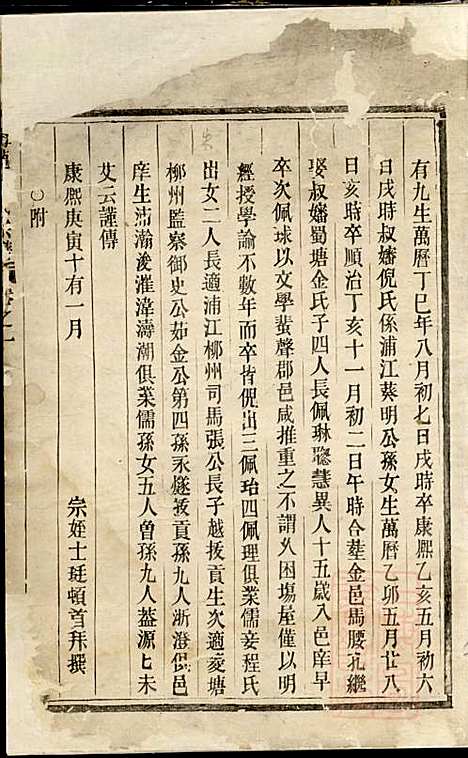 有九生萬曆丁巳年八月初七日戌時卒康熙乙亥五月初六
日戌時叔嬸倪氏係浦江葵明公孫女生萬曆乙卯五月廿八
日亥時卒順治丁亥十一月初二日午時合葬金邑馬腰孔繼
娶叔嬸蜀塘金氏子四人長佩琳聰慧異人十五歲入邑庠早
卒次佩球以文學蜚聲郡邑咸推重之不謂久困塲屋僅以明
經授學諭不數年而卒皆倪出三佩珆四佩理俱業儒妾程氏
出女二人長適浦江柳州司馬張公長子越拔貢生次適菱塘
柳州監察御史公茹金公第四孫永燧拔貢孫九人浙澄俱邑
庠生沛瀚浚漼湋濤潮俱業儒孫女五人曾孫九人葢源匕未
艾云謹傳
康熙庚寅十有一月
宗姪士珽頓首拜撰
○附